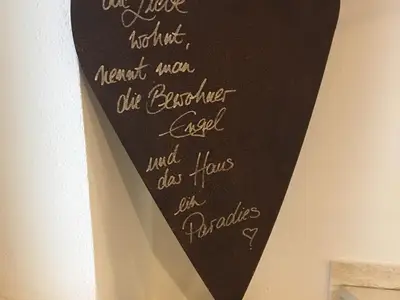 die Liebe
wohnt,
nennt man
die Bewohner
Engel
und
das Haus
ein
Paradies